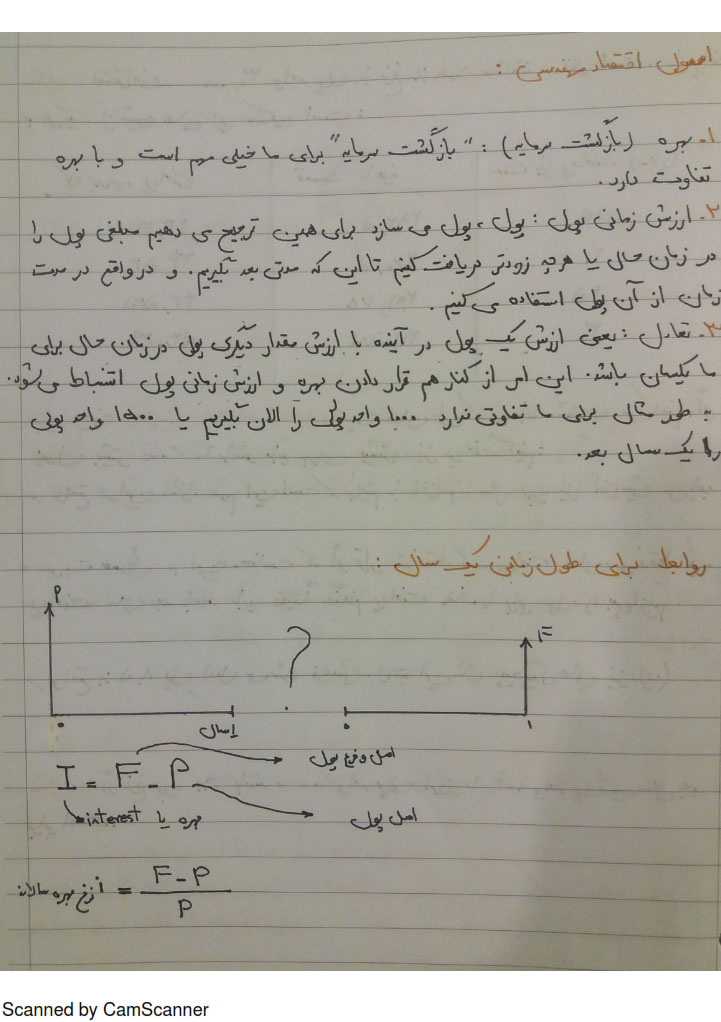 اصول اقتصاد مهندسی :
۱- بهره (بازگشت سرمایه) : "بازگشت سرمایه" برای ما خیلی مهم است و با بهره
تفاوت دارد.
۲- ارزش زمانی پول : پول ، پول می سازد برای همین ترجیح می دهیم مبلغی پول را
در زمان حال یا هرچه زودتر دریافت کنیم تا این که مدتی بعد بگیریم. و در واقع در مدت
زمان از آن پول استفاده می کنیم .
۳- تعادل : یعنی ارزش یک پول در آینده با ارزش مقدار دیگری پول در زمان حال برای
ما یکسان باشد. این امر از کنار هم قرار دادن بهره و ارزش زمانی پول استنباط می شود.
به طور مثال برای ما تفاوتی ندارد ۱۰۰۰ واحد پولی را الان بگیریم یا ۱۵۰۰ واحد پولی
را یک سال بعد.
روابط برای طول زمانی یک سال :
P
? F
۰ ۱سال ۰ ۱
I = F - P
اصل و فرع پول
بهره یا interest
اصل پول
نرخ بهره سالانه = (F-P) / P
Scanned by CamScanner